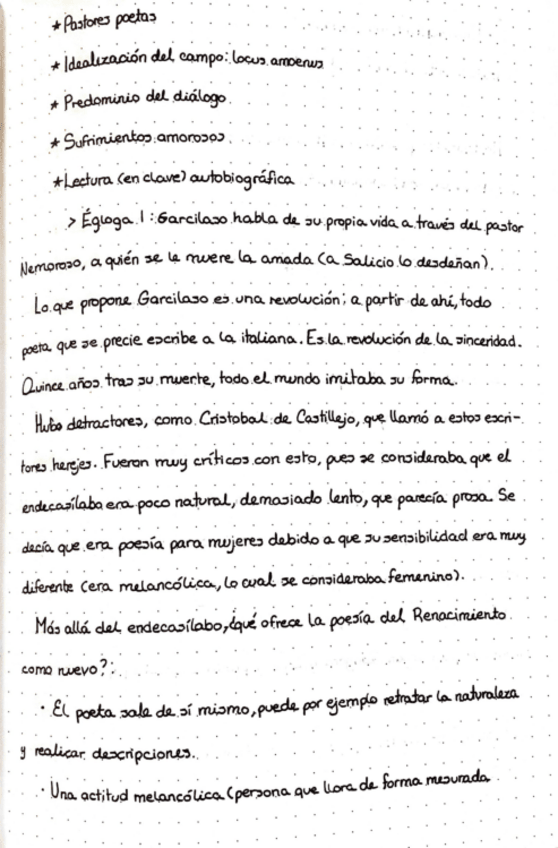 * Pastores poetas
* Idealización del campo: locus amoenus
* Predominio del diálogo.
* Sufrimientos amorosos.
* Lectura (en clave) autobiográfica
> Égloga I: Garcilaso habla de su propia vida a través del pastor
Nemoroso, a quién se le muere la amada (a Salicio lo desdeñan).
Lo que propone Garcilaso es una revolución; a partir de ahí, todo
poeta que se precie escribe a la italiana. Es la revolución de la sinceridad.
Quince años tras su muerte, todo el mundo imitaba su forma.
Hubo detractores, como Cristobal de Castillejo, que llamó a estos escri-
tores herejes. Fueron muy críticos con esto, pues se consideraba que el
endecasílabo era poco natural, demasiado lento, que parecía prosa. Se
decía que era poesía para mujeres debido a que su sensibilidad era muy
diferente (era melancólica, lo cual se consideraba femenino).
Más allá del endecasílabo, ¿qué ofrece la poesía del Renacimiento
como nuevo?:
· El poeta sale de sí mismo, puede por ejemplo retratar la naturaleza
y realizar descripciones.
· Una actitud melancólica (persona que llora de forma mesurada